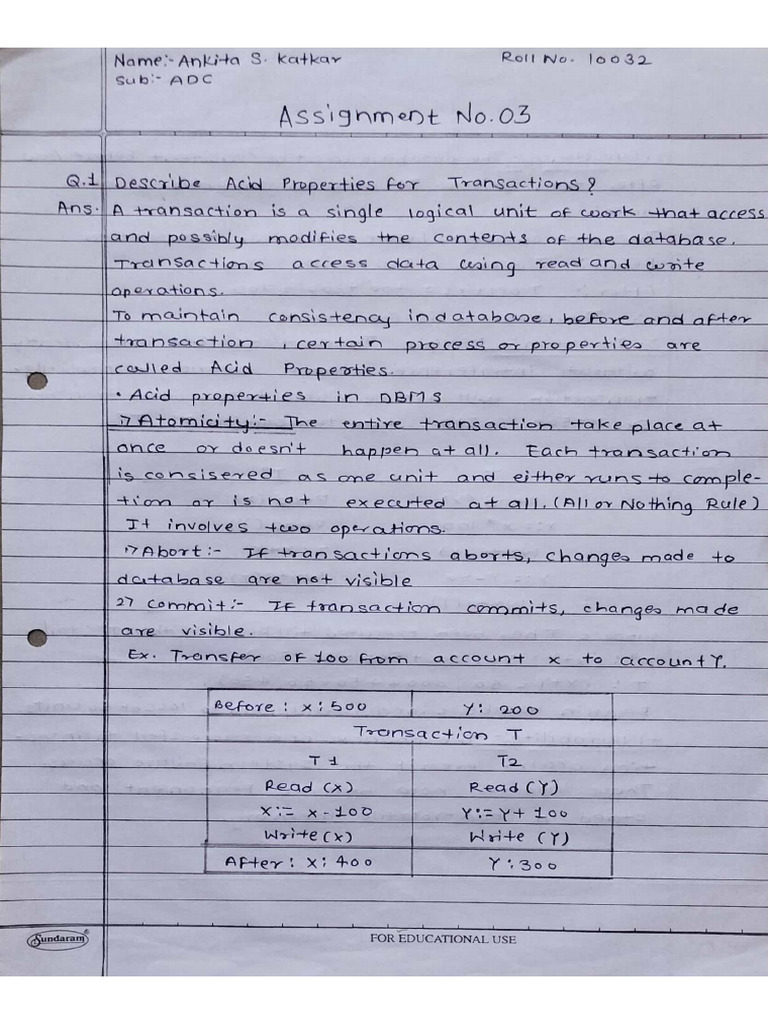 Name:- Ankita S. Katkar Roll No. 10032
Sub:- ADC
Assignment No.03
Q.1 Describe Acid Properties for Transactions?
Ans. A transaction is a single logical unit of work that access
and possibly modifies the contents of the database.
Transactions access data using read and write
operations.
To maintain consistency in database, before and after
transaction, certain process or properties are
called Acid Properties.
• Acid properties in DBMS
1) Atomicity:- The entire transaction take place at
once or doesn't happen at all. Each transaction
is consisered as one unit and either runs to comple-
tion or is not executed at all. (All or Nothing Rule)
It involves two operations.
1) Abort:- If transactions aborts, changes made to
database are not visible
2) Commit:- If transaction commits, changes made
are visible.
Ex. Transfer of 100 from account x to account Y.
Before: X: 500 Y: 200
Transaction T
T1 T2
Read (X) Read (Y)
X:= X-100 Y:= Y+ 100
Write (X) Write (Y)
After: X: 400 Y: 300
Sundaram FOR EDUCATIONAL USE